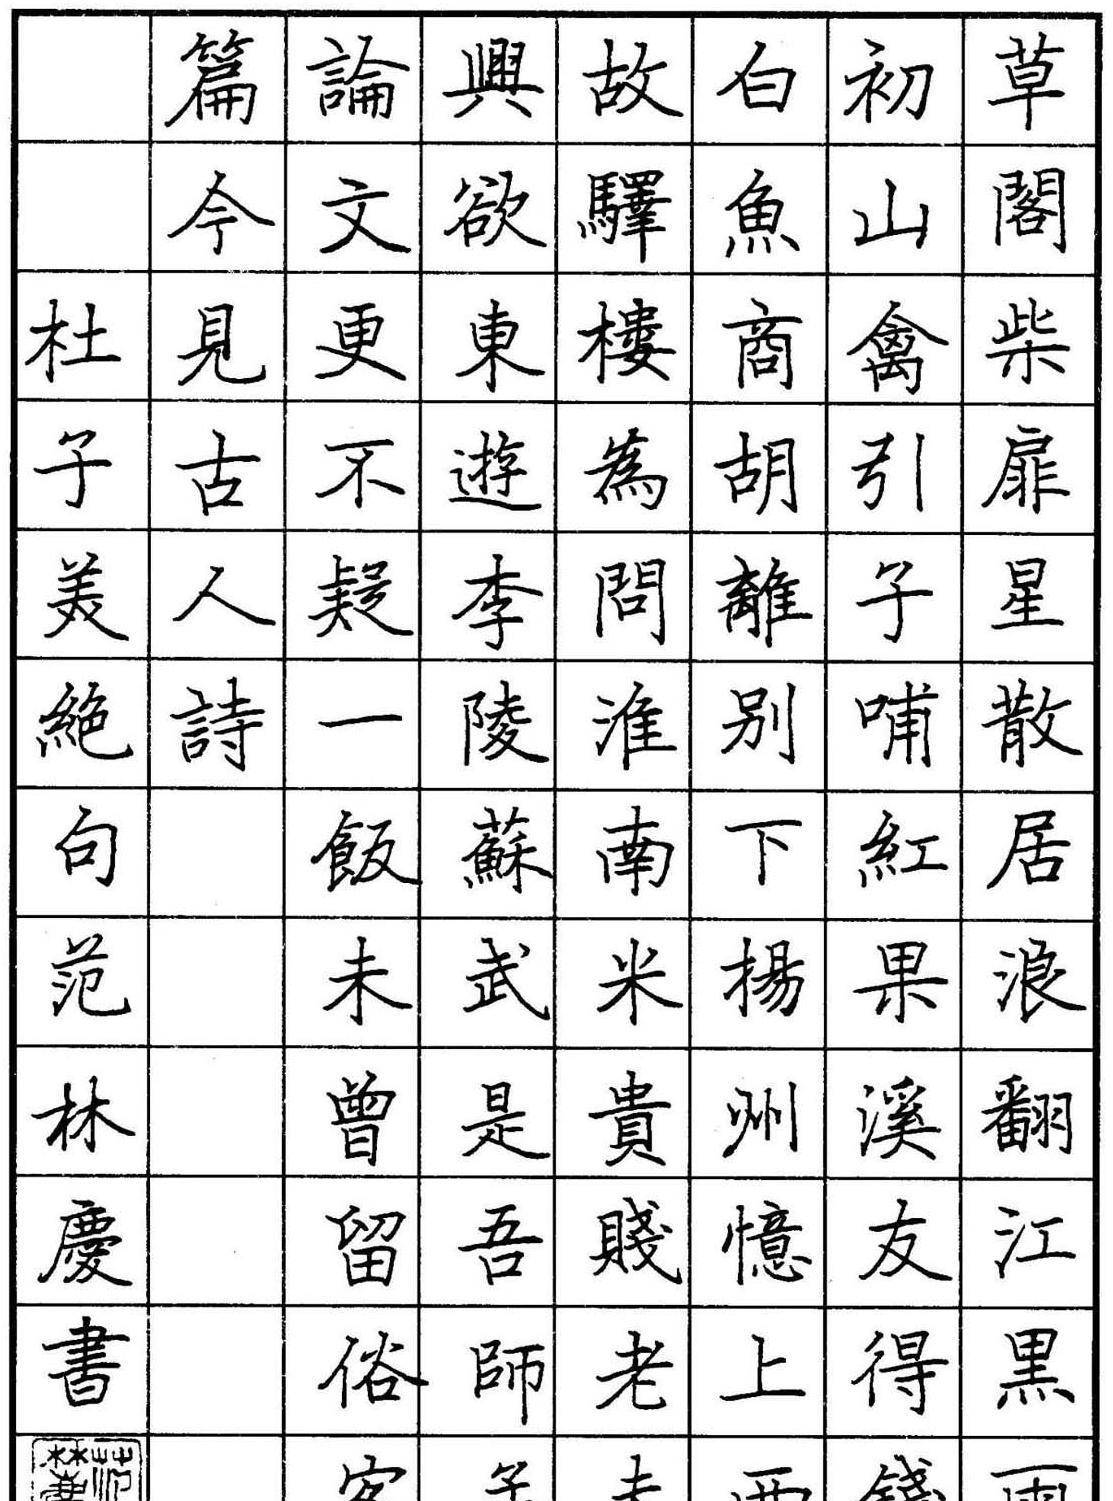 草閣柴扉星散居浪翻江黑雨
初山禽引子哺紅果溪友得錢
白魚商胡離別下揚州憶上西
故驛樓為問淮南米貴賤老夫
興欲東遊李陵蘇武是吾師孟
論文更不疑一飯未曾留俗客
篇今見古人詩
杜子美絕句范林慶書